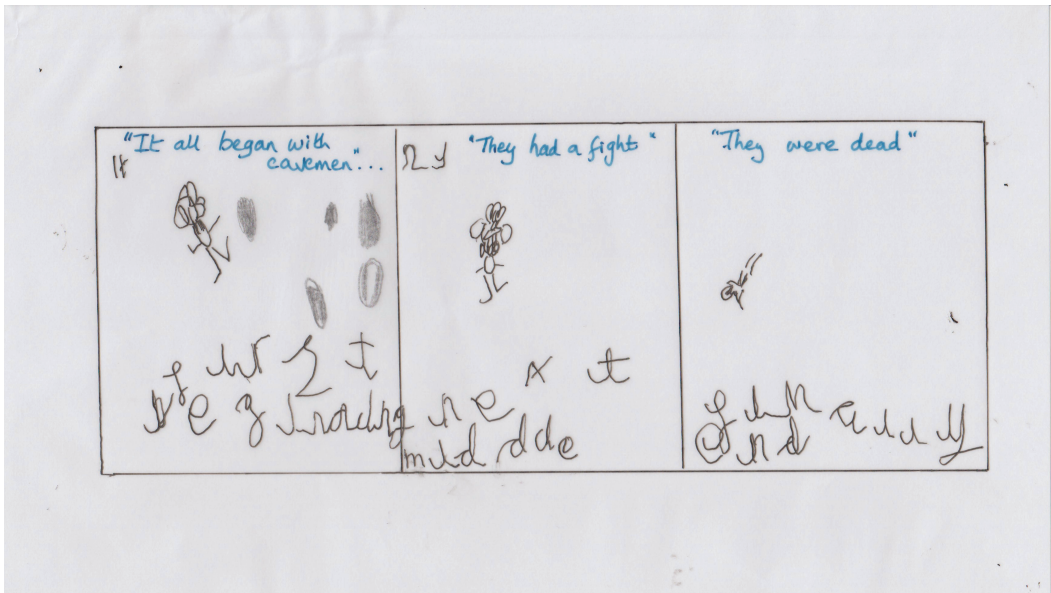 "It all began with
cavemen"...
f ir s t
"They had a fight"
n e x t
mid dde
"They were dead"
f in a l l y
end